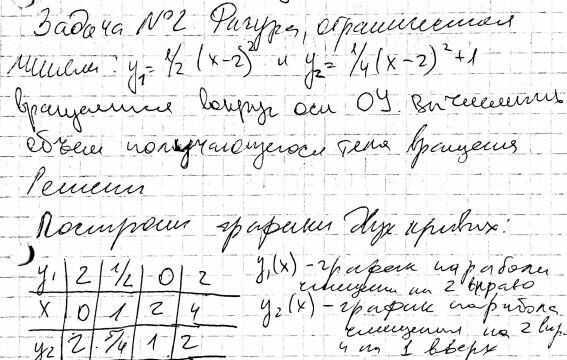 Задача №2 Фигура, ограниченная
линиями: y₁=1/2 (x-2)² и y₂= 1/4(x-2)²+1
вращается вокруг оси ОУ. Вычислить
объем получающегося тела вращения
Решени
Построим графики двух кривых:
y₁ | 2 | 1/2 | 0 | 2
x | 0 | 1 | 2 | 4
y₂ | 2 | 5/4 | 1 | 2
y₁(x) - график параболы
смещен на 2 вправо
y₂(x) - график парабола
смещения на 2 впр.
и на 1 вверх